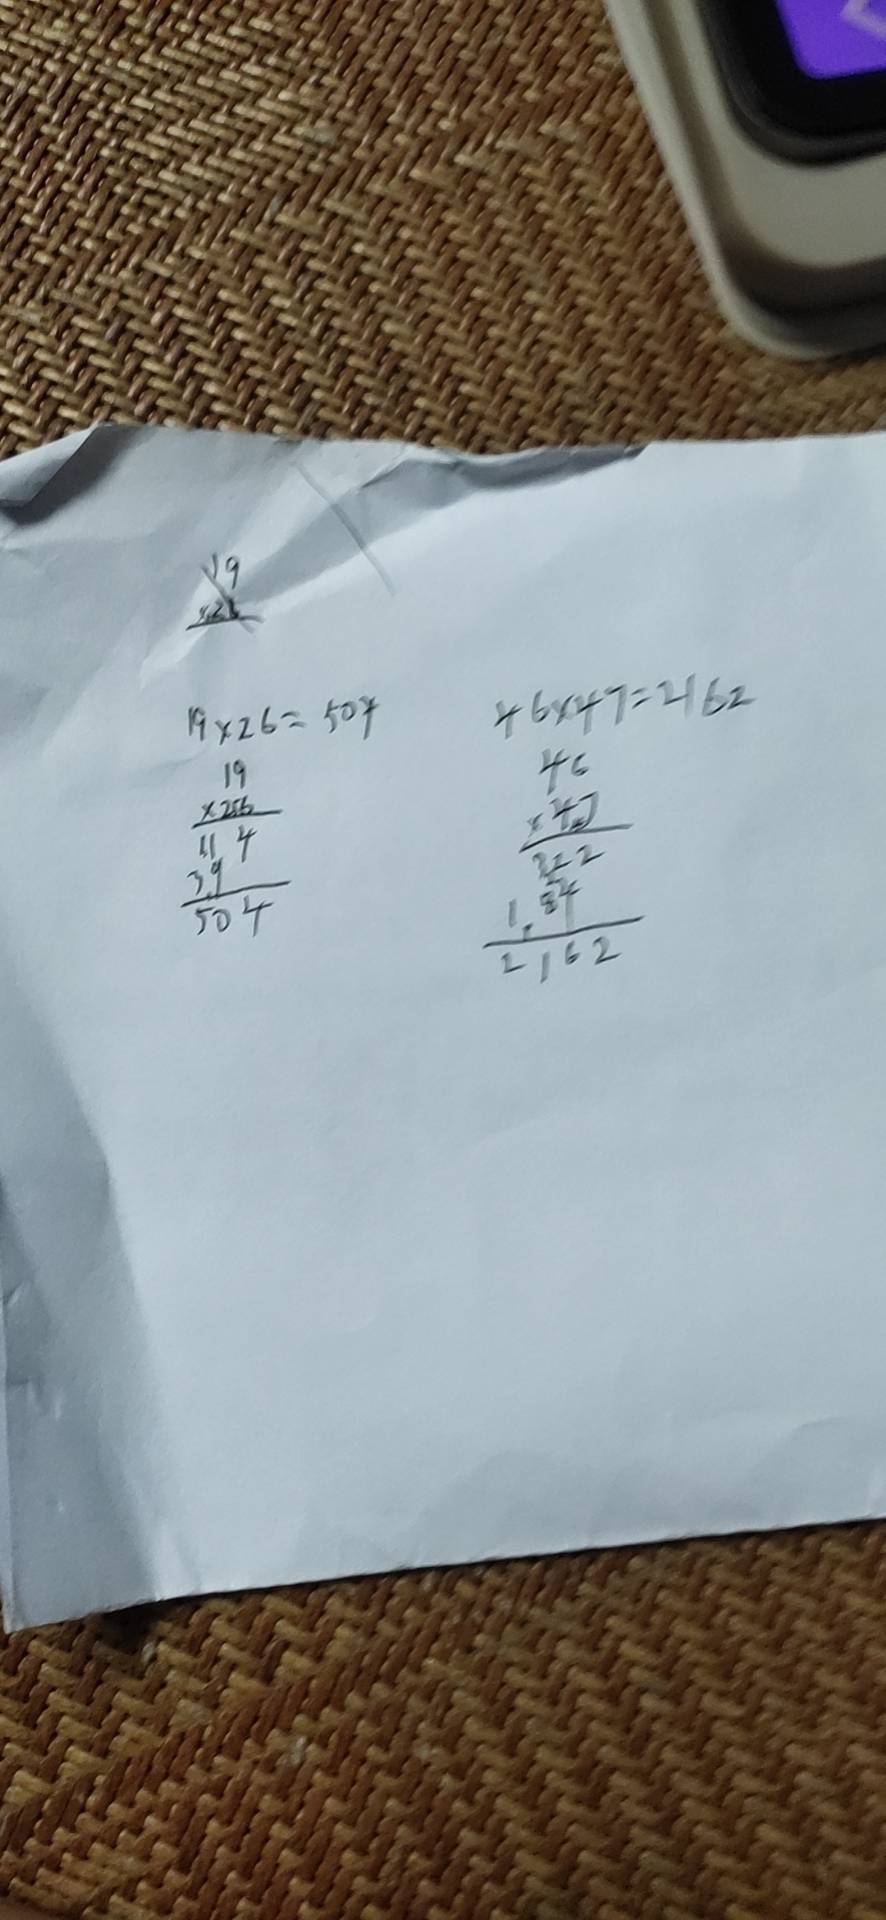 19
×26
19×26=504
19
×26
114
39
504
46×47=2162
46
×47
322
184
2162